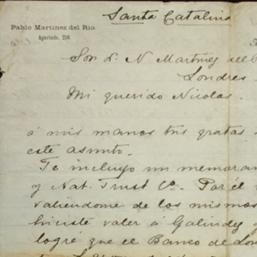 Santa Catalina
Pablo Martinez del Rio
Apartado,
Sor. D. N. Martinez del
Londres
Mi querido Nicolas.
á mis manos tus gratas
este asunto.
Te incluyo un memoran
y Nat. Trust Co. Por el
valiendome de los mismos
hiciste valer á Galindez
logré que el Banco de Lon